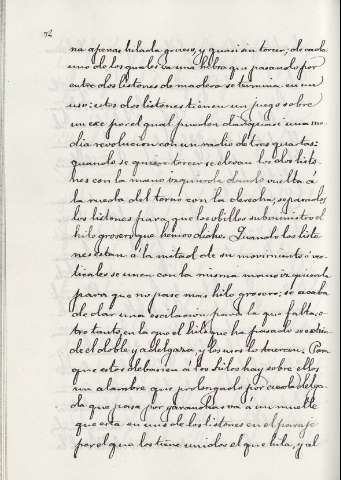 72
na apenas hilada grueso, y quasi sin torcer, de cada
uno de los quales va una hebra que pasando por
entre dos listones de madera se termina en un
uso: estos dos listones tienen un juego sobre
un exe por el qual pueden dar quasi una me
dia revolucion con un radio de tres quartas:
quando se quiere torcer se elevan los dos listo
nes con la mano izquierda dando vuelta á
la rueda del torno con la derecha, separados
los listones para que los obillos subministren el
hilo grosero que hemos dicho. Quando los listo
nes estan á la mitad de su movimiento ó ver
ticales se unen con la misma mano izquierda
para que no pase mas hilo grosero; se acaba
de dar una oscilacion para la que falta, o
tro tanto, en la que el hilo que ha pasado se estien
de el doble y adelgaza, y los usos lo tuercen. Para
que estos deban en á los hilos hay sobre ellos
un alambre que prolongado por cada delga
da que pasa por garruchas va á un muelle
que esta en uno de los listones en el parage
por el que los tiene unidos el que hila, y al